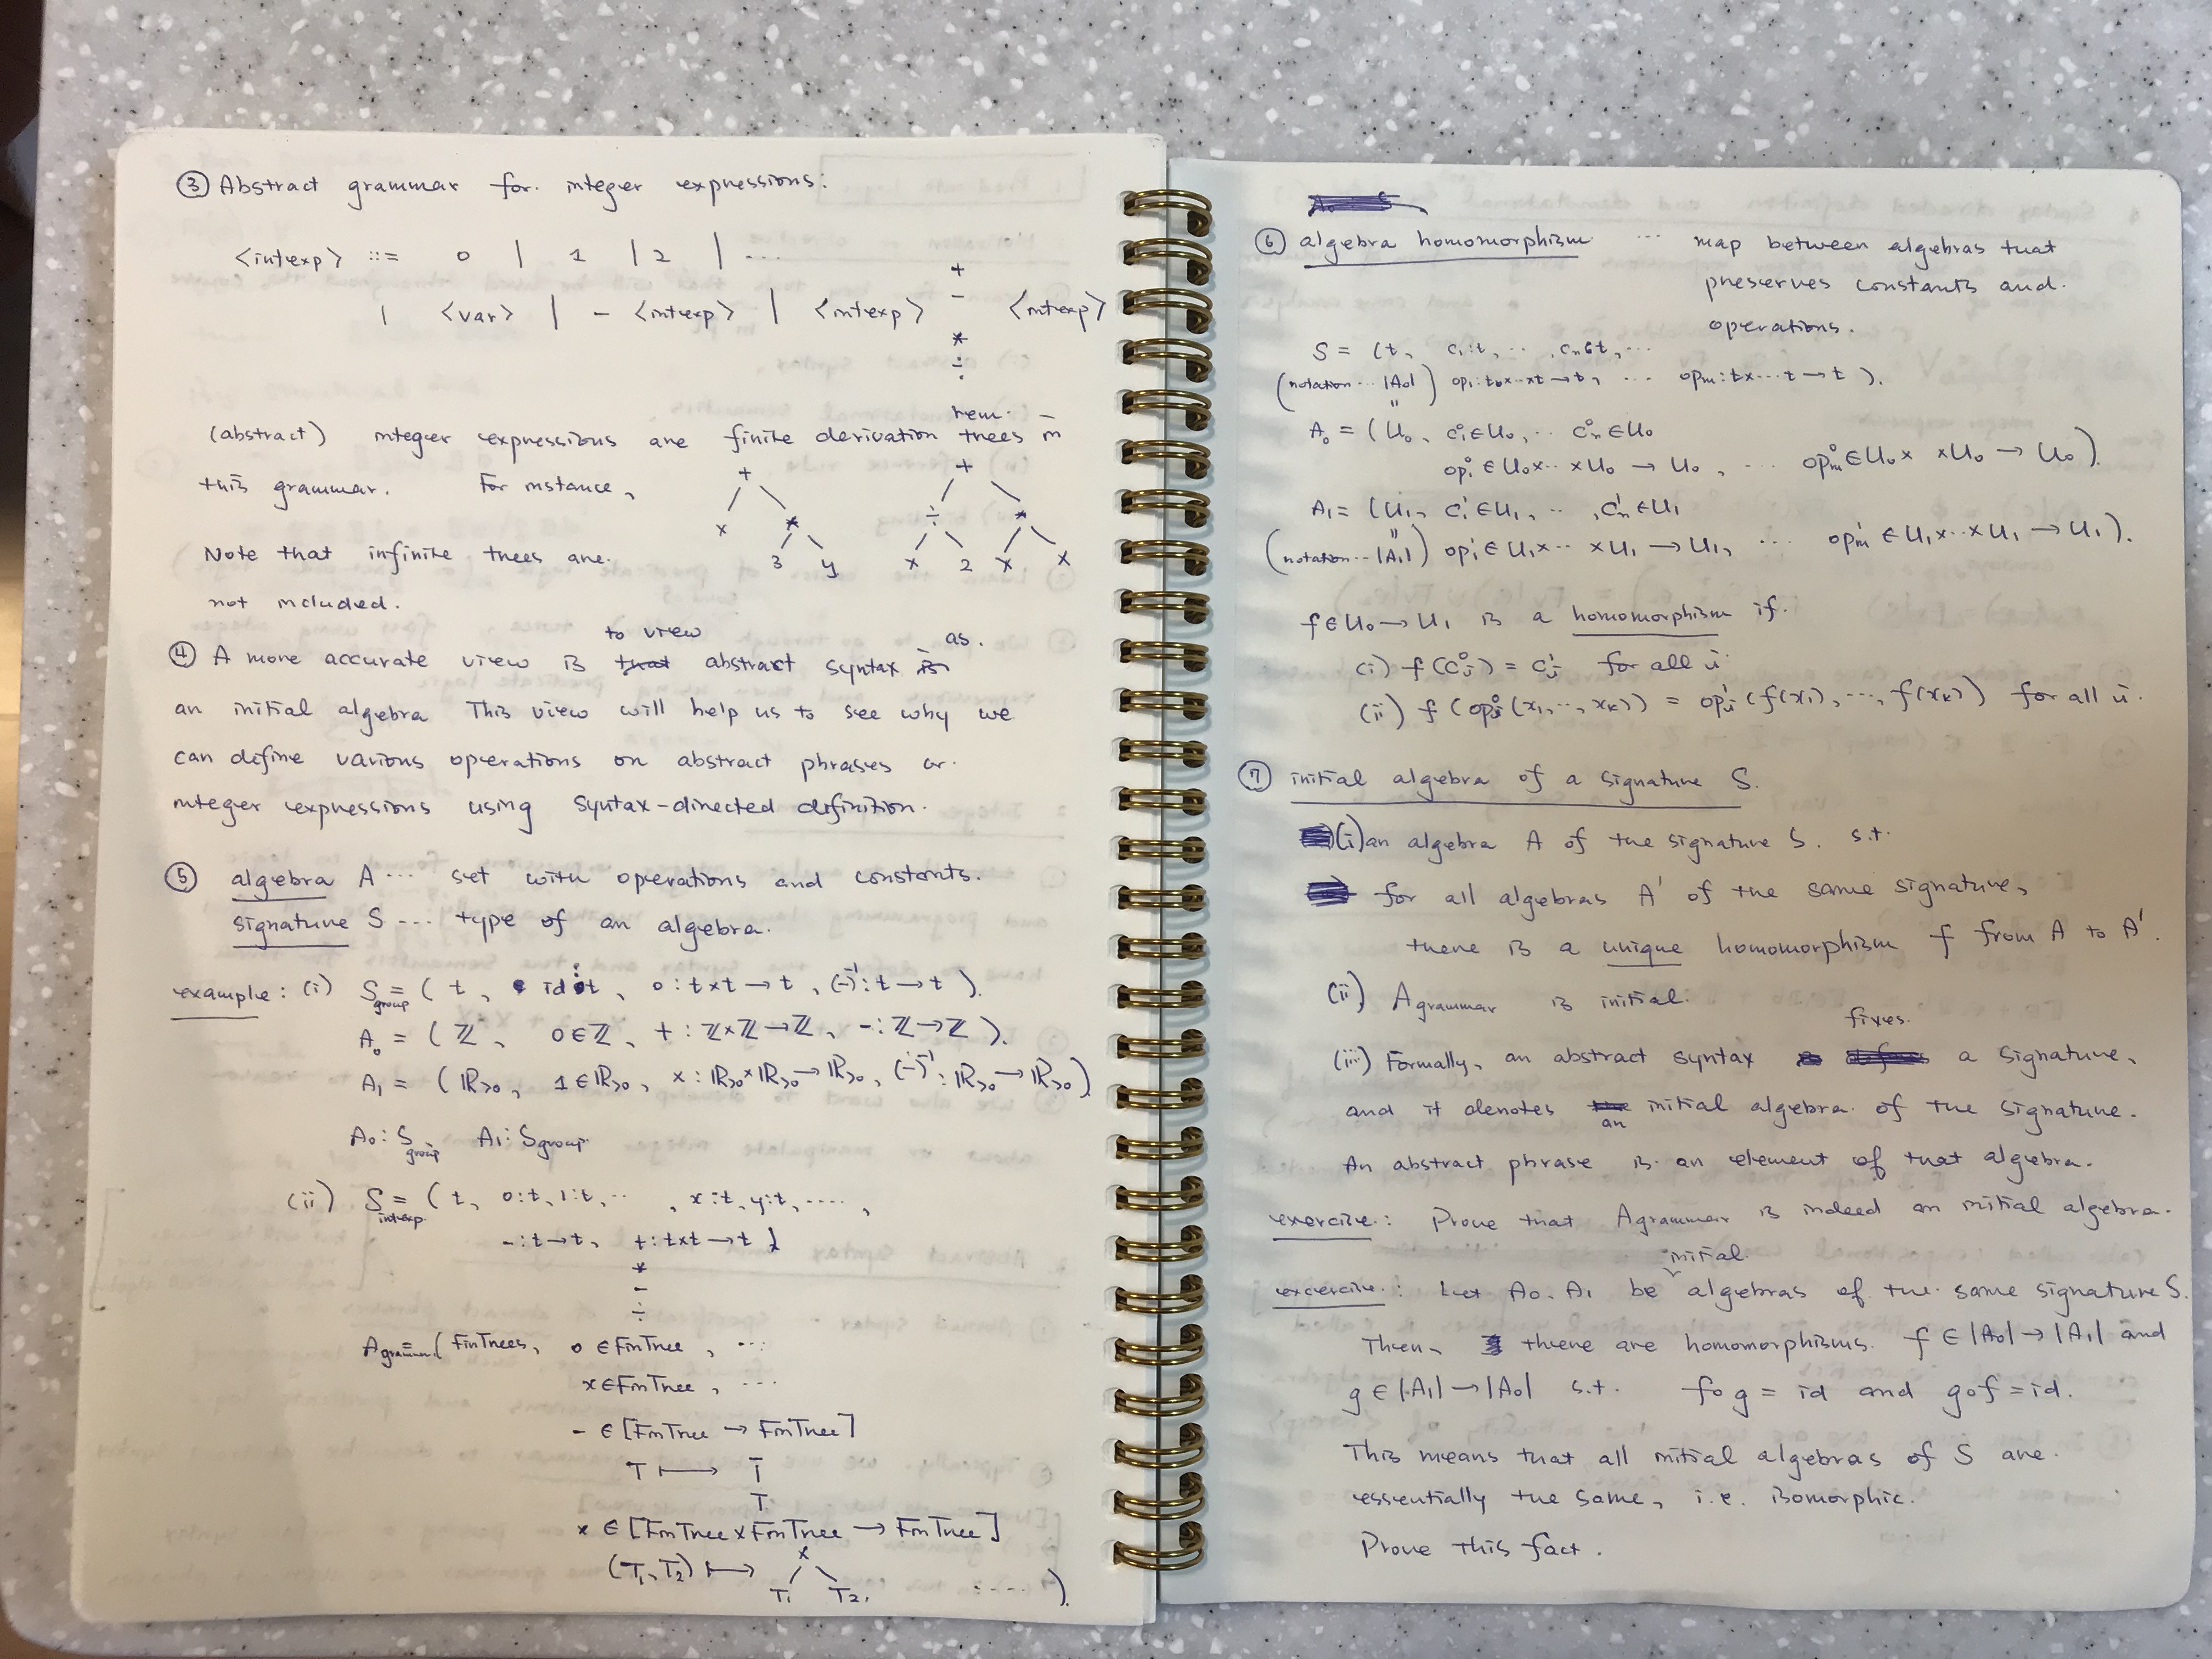 ③ Abstract grammar for integer expressions:
<intexp> ::= 0 | 1 | 2 | ...
| <var> | - <intexp> | <intexp> + <intexp>
-
*
÷
rem
(abstract) integer expressions are finite derivation trees in
this grammar. For instance,
+ +
x * ÷ *
3 y x 2 x x
Note that infinite trees are
not included.
to view as
④ A more accurate view is abstract syntax
an initial algebra This view will help us to see why we
can define various operations on abstract phrases or
integer expressions using syntax-directed definition.
⑤ algebra A ... set with operations and constants.
signature S ... type of an algebra.
example: (i) S_group = ( t, id:t, o: t×t→t, (-)⁻¹: t→t ).
A₀ = ( ℤ, 0∈ℤ, +: ℤ×ℤ→ℤ, -: ℤ→ℤ ).
A₁ = ( ℝ>0, 1∈ℝ>0, ×: ℝ>0×ℝ>0→ℝ>0, (-)⁻¹: ℝ>0→ℝ>0 )
A₀: S_group A₁: S_group
(ii) S_intexp = ( t, 0:t, 1:t, ... , x:t, y:t, ....,
-: t→t, +: t×t→t )
*
-
÷
A_grammar = ( FinTrees, 0 ∈ FinTree, ...
x ∈ FinTree, ...
- ∈ [FinTree → FinTree]
T ↦ -
T
× ∈ [FinTree × FinTree → FinTree]
(T₁, T₂) ↦ ×
T₁ T₂ ..... ).
⑥ algebra homomorphism ... map between algebras that
preserves constants and
operations.
S = (t, c₁:t, ... , cₙ:t, ...
(notation... |A₀|) op₁: t×...×t→t, ... opₘ: t×...t→t ).
A₀ = ( U₀, c₁⁰∈U₀, ... cₙ⁰∈U₀
op₁⁰ ∈ U₀×...×U₀ → U₀, ... opₘ⁰ ∈ U₀× ×U₀ → U₀ ).
A₁ = ( U₁, c₁¹∈U₁, ... , cₙ¹∈U₁
(notation... |A₁|) op₁¹ ∈ U₁×...×U₁ → U₁, ... opₘ¹ ∈ U₁×...×U₁ → U₁ ).
f ∈ U₀ → U₁ is a homomorphism if
(i) f(cᵢ⁰) = cᵢ¹ for all i
(ii) f(opᵢ⁰(x₁,...,xₖ)) = opᵢ¹(f(x₁),...,f(xₖ)) for all i.
⑦ initial algebra of a signature S.
(i) an algebra A of the signature S. s.t.
for all algebras A' of the same signature,
there is a unique homomorphism f from A to A'.
(ii) A_grammar is initial.
fixes
(iii) Formally, an abstract syntax a signature,
and it denotes an initial algebra of the signature.
An abstract phrase is an element of that algebra.
exercise: Prove that A_grammar is indeed an initial algebra.
initial
excercise: Let A₀, A₁ be algebras of the same signature S.
Then, there are homomorphisms f ∈ |A₀| → |A₁| and
g ∈ |A₁| → |A₀| s.t. f∘g = id and g∘f = id.
This means that all initial algebras of S are
essentially the same, i.e. isomorphic.
Prove this fact.